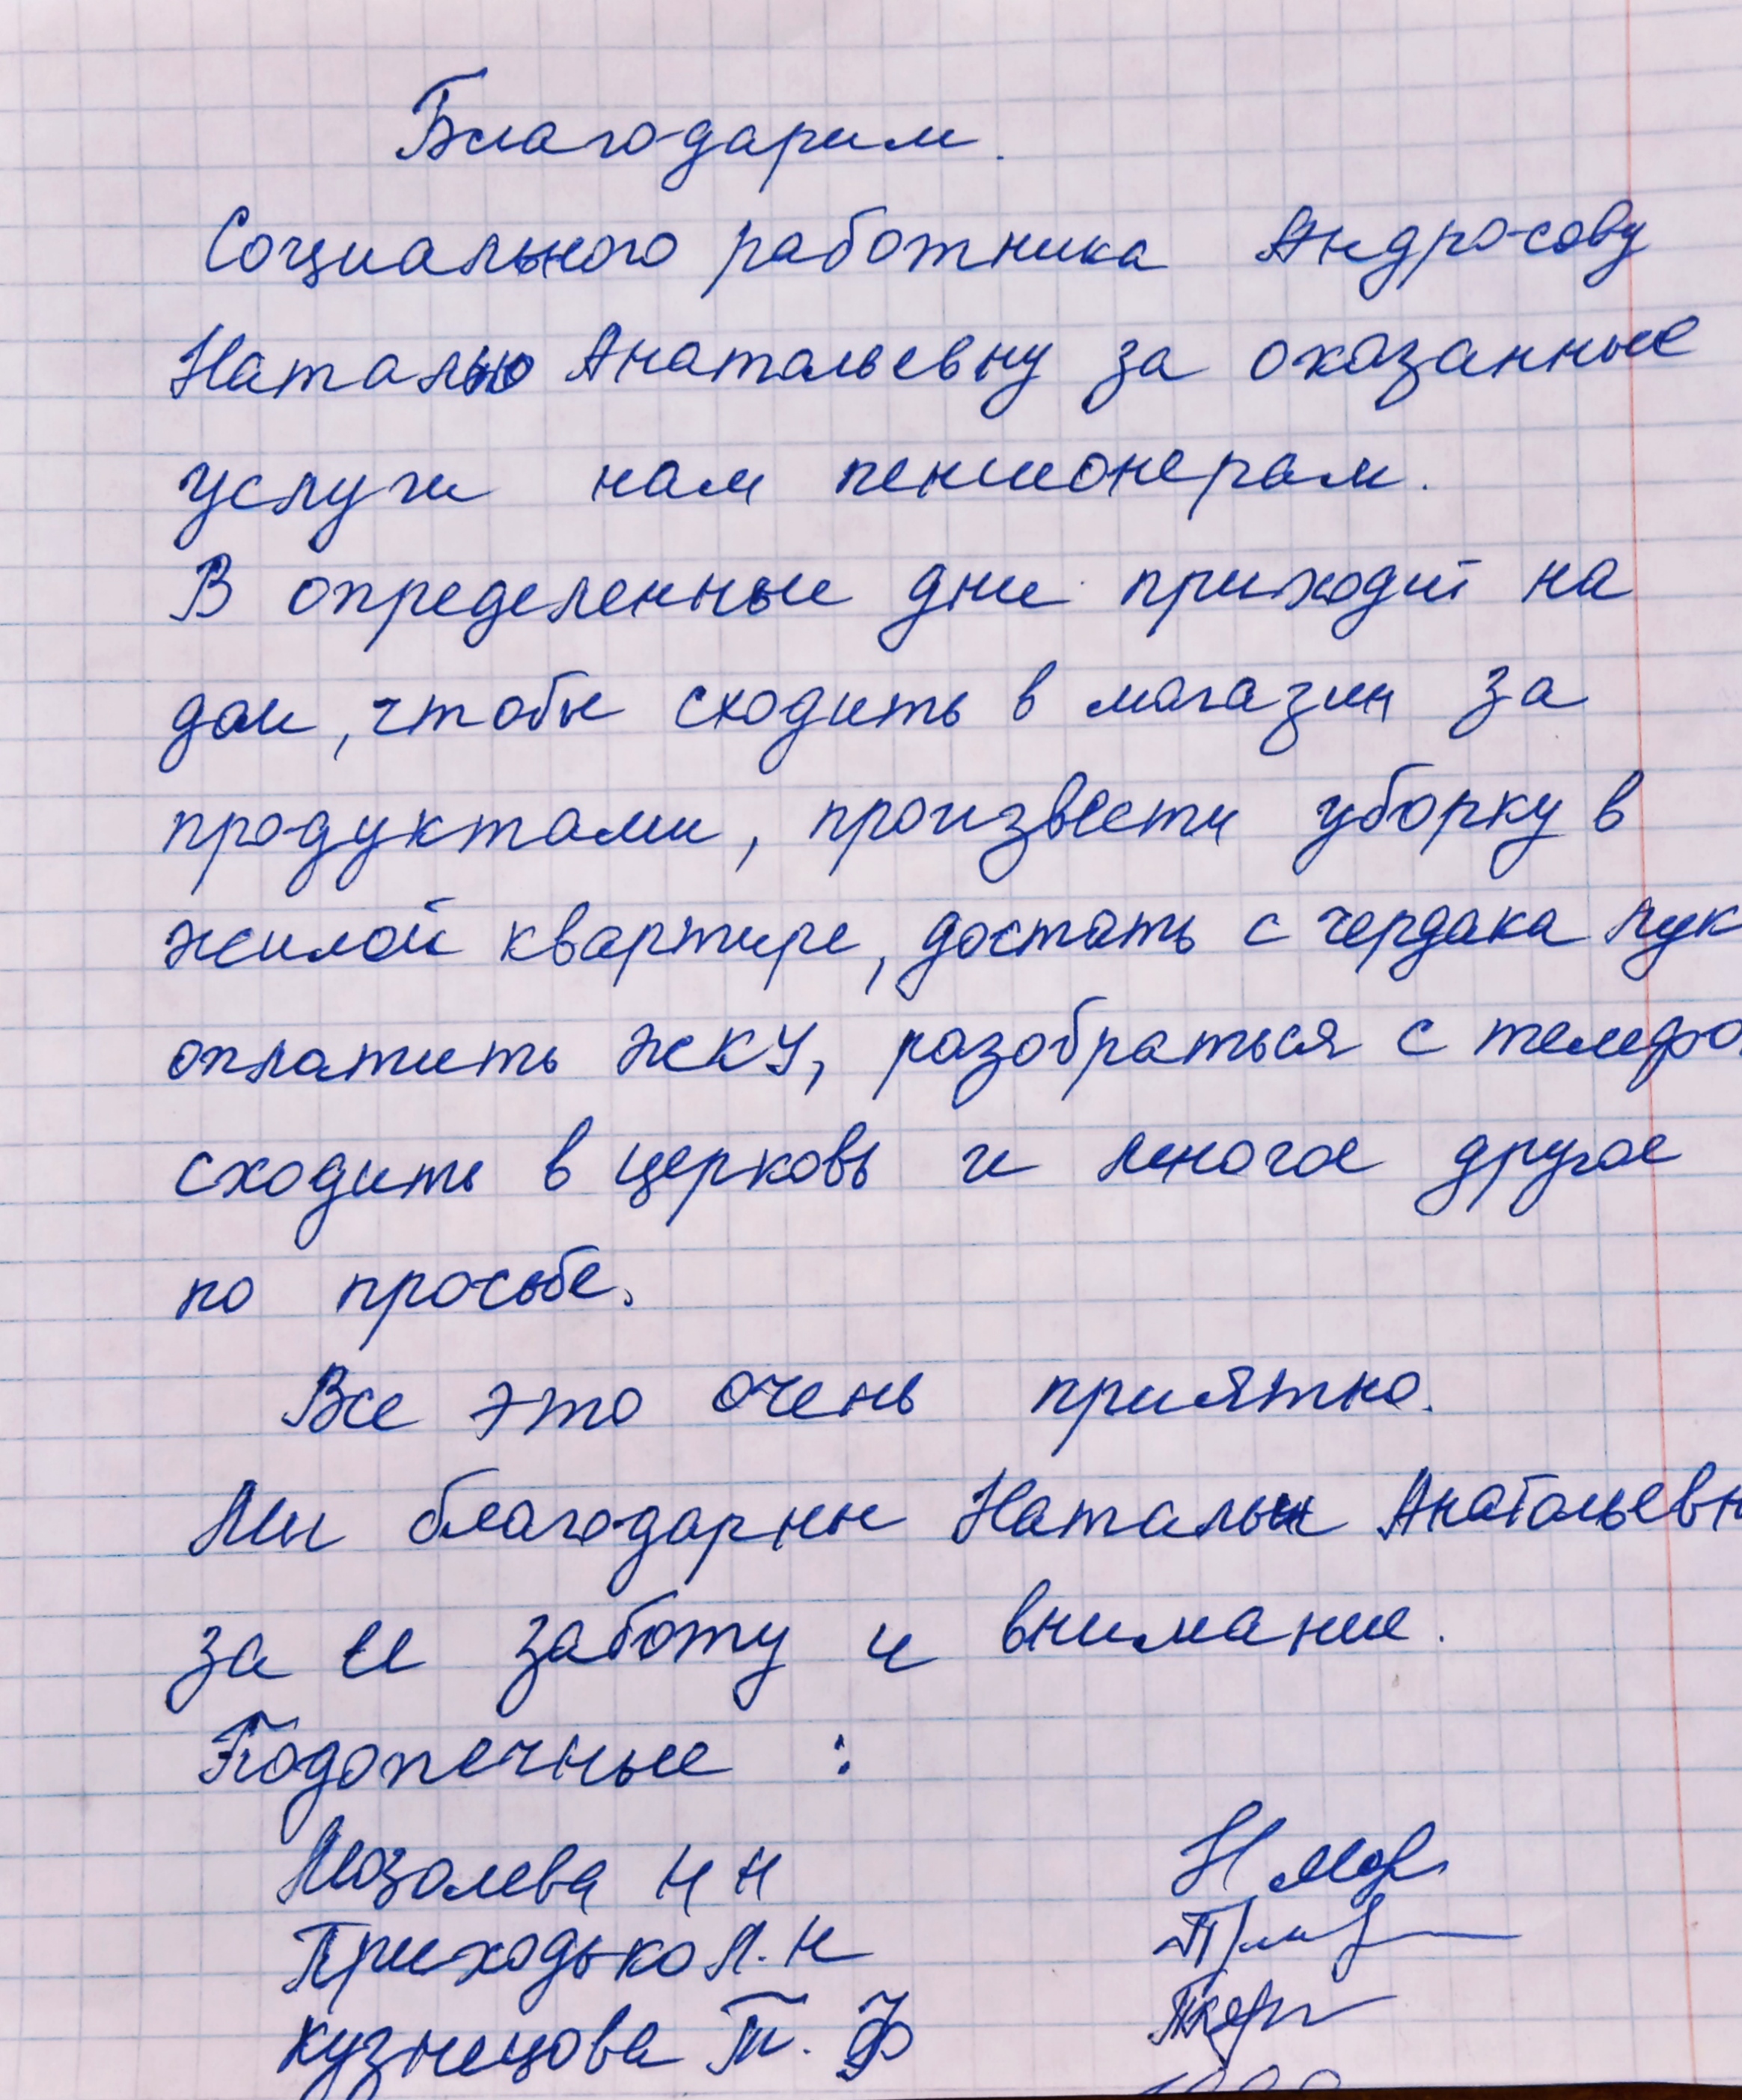 Благодарим.
Социального работника Андросову
Наталью Анатальевну за оказанные
услуги нам пенсионерам.
В определенные дни приходит на
дом, чтобы сходить в магазин за
продуктами, произвести уборку в
жилой квартире, достать с чердака лук
оплатить ЖКУ, разобраться с телефо
сходить в церковь и многое другое
по просьбе.
Все это очень приятно.
Мы благодарны Натальи Анатальевн
за её заботу и внимание.
Подопечные :
Мозолева Н Н
Приходько Л. Н
Кузнецова Т. Ф